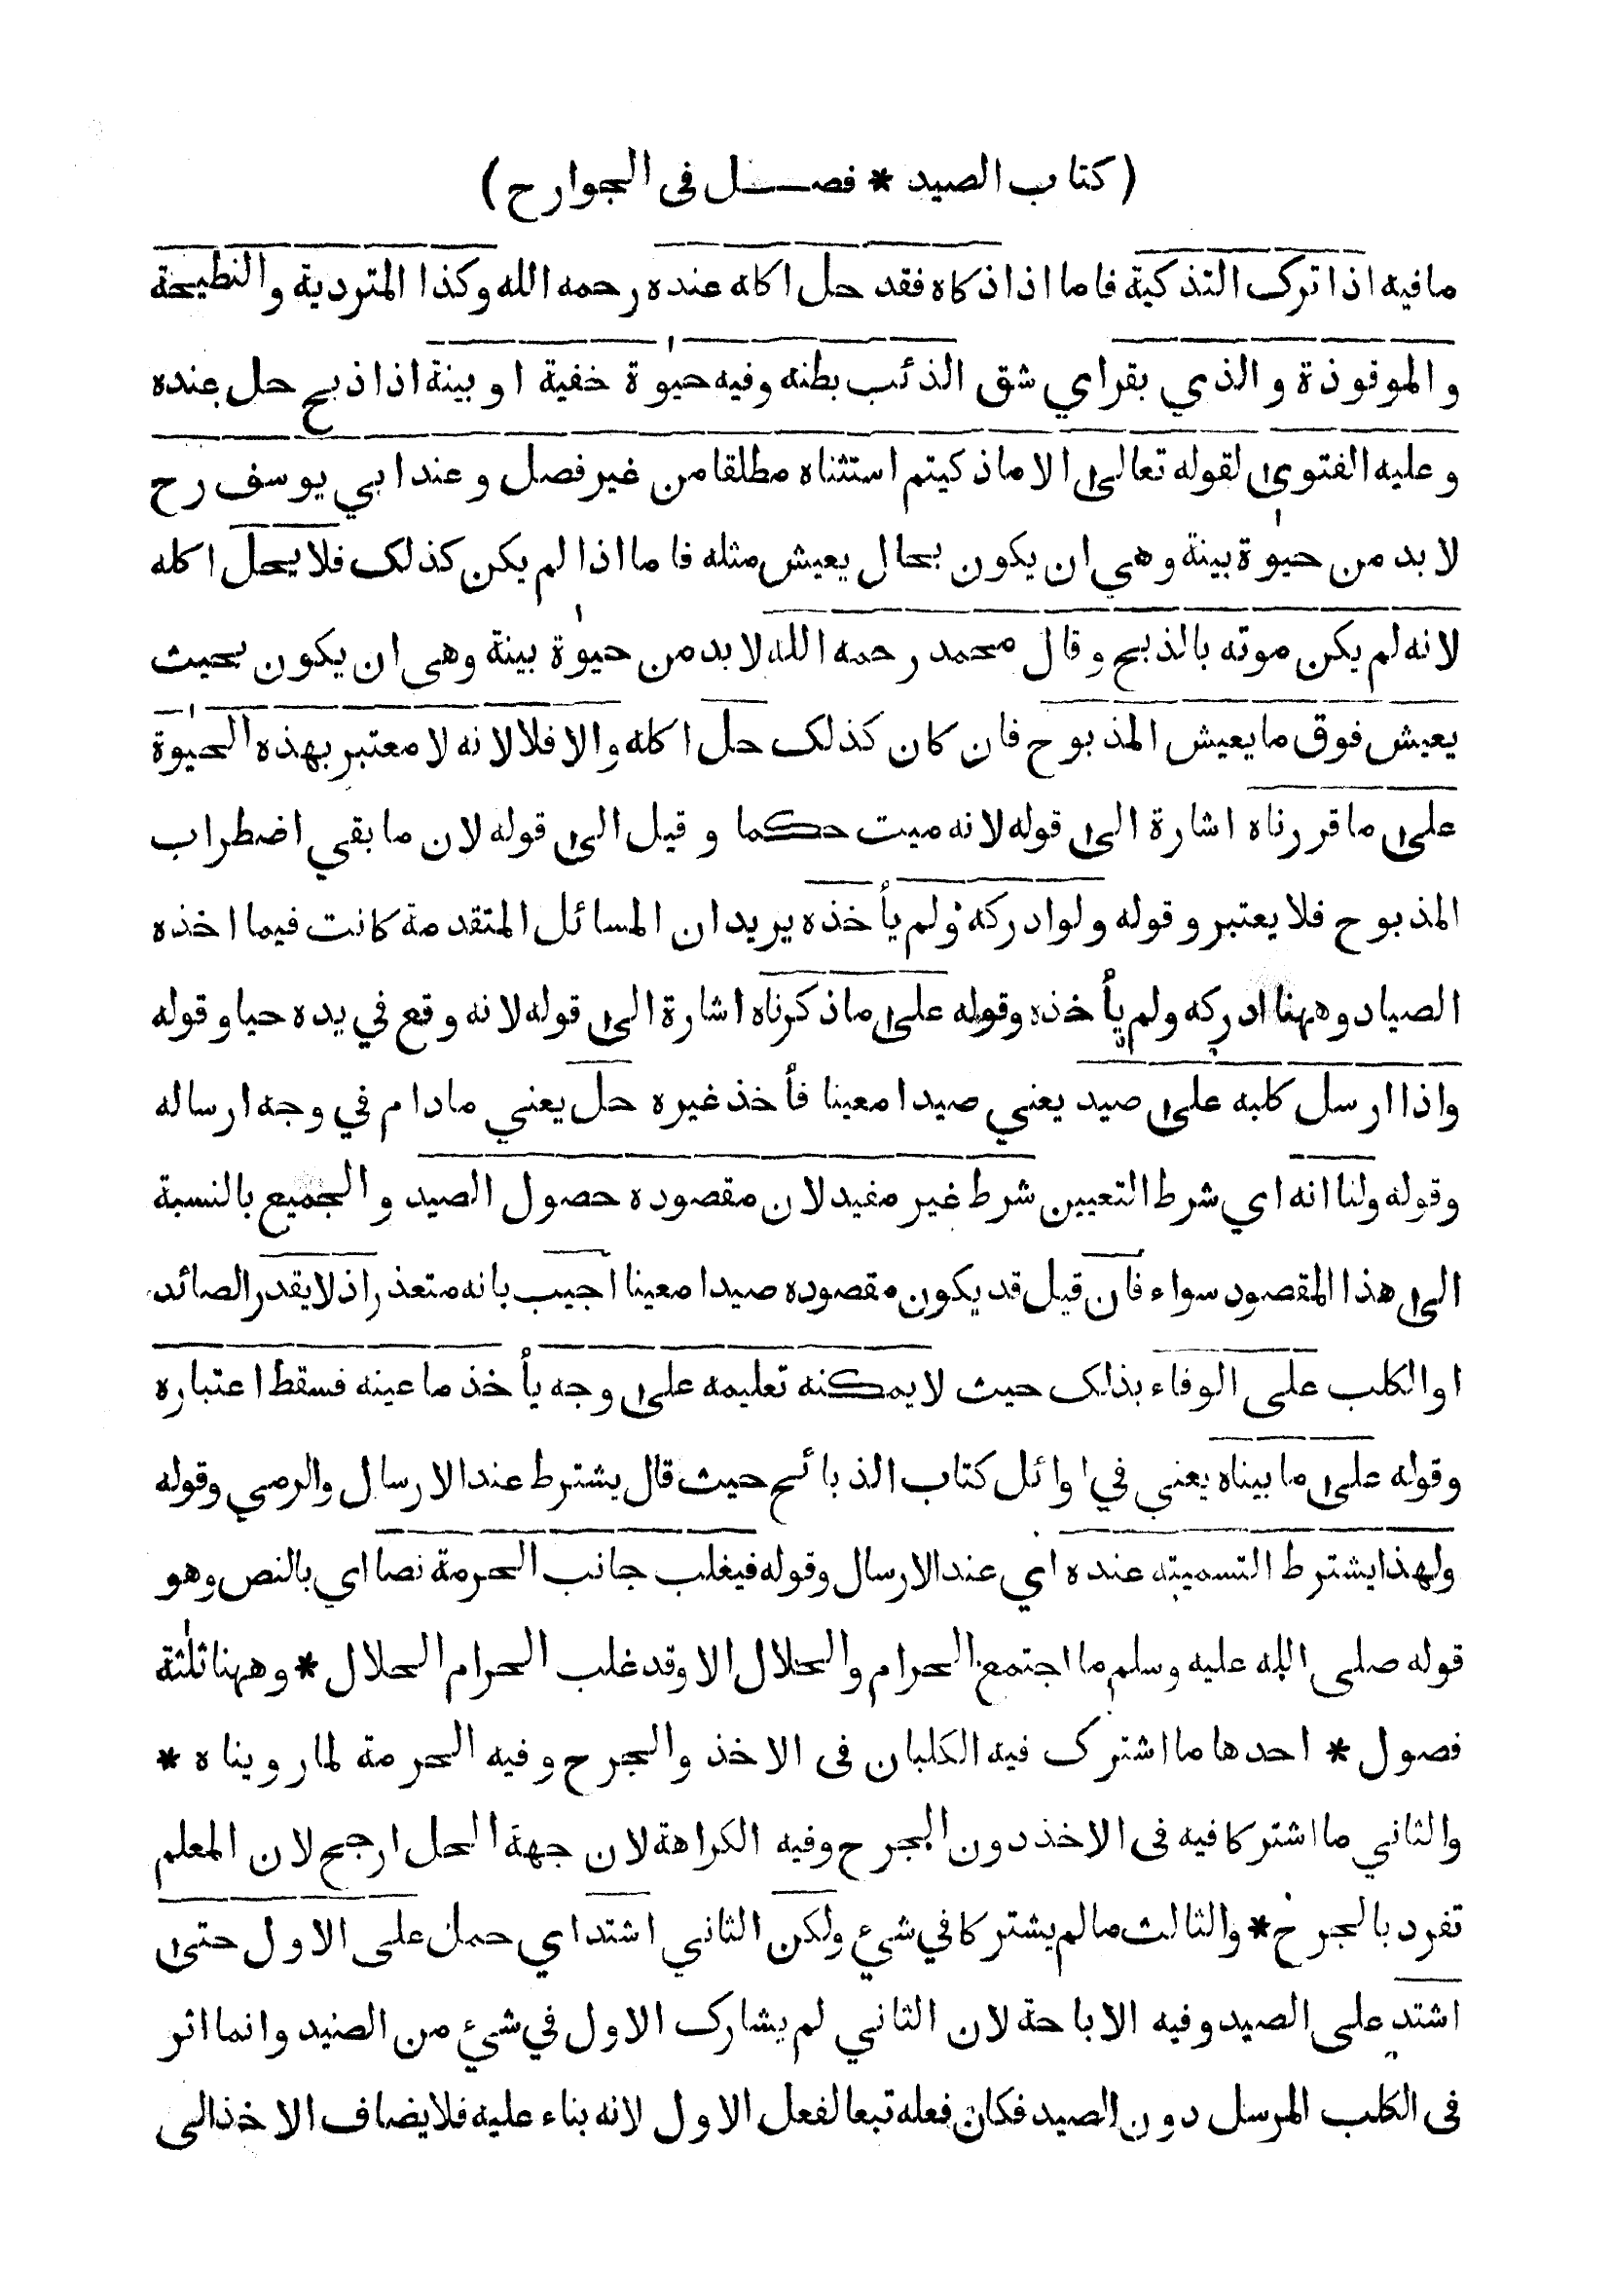 (كتاب الصيد * فصل فى الجوارح)
مافيه اذا ترك التذكية فاما اذا ذكاه فقد حل اكله عنده رحمه الله وكذا المتردية والنطيحة
والموقوذة والذي بقراي شق الذئب بطنه وفيه حيوة خفية اوبينة اذا ذبح حل عنده
وعليه الفتوى لقوله تعالى الا ماذكيتم استثناه مطلقا من غير فصل وعند ابي يوسف رح
لابد من حيوة بينة وهي ان يكون بحال يعيش مثله فاما اذا لم يكن كذلك فلا يحل اكله
لانه لم يكن موته بالذبح وقال محمد رحمه الله لابد من حيوة بينة وهى ان يكون بحيث
يعيش فوق مايعيش المذبوح فان كان كذلك حل اكله والا فلا لانه لا معتبر بهذه الحيوة
على ماقررناه اشارة الى قوله لانه ميت حكما وقيل الى قوله لان مابقي اضطراب
المذبوح فلا يعتبر وقوله ولو ادركه ولم يأخذه يريد ان المسائل المتقدمة كانت فيما اخذه
الصياد وههنا ادركه ولم يأخذه وقوله على ماذكرناه اشارة الى قوله لانه وقع في يده حيا وقوله
واذا ارسل كلبه على صيد يعني صيدا معينا فأخذ غيره حل يعني مادام في وجه ارساله
وقوله ولنا انه اي شرط التعيين شرط غير مفيد لان مقصوده حصول الصيد والجميع بالنسبة
الى هذا المقصود سواء فان قيل قد يكون مقصوده صيدا معينا اجيب بانه متعذر اذ لا يقدر الصائد
او الكلب على الوفاء بذلك حيث لا يمكنه تعليمه على وجه يأخذ ماعينه فسقط اعتباره
وقوله على مابيناه يعني في اوائل كتاب الذبائح حيث قال يشترط عند الارسال والرمي وقوله
ولهذا يشترط التسميته عنده اي عند الارسال وقوله فيغلب جانب الحرمة نصا اي بالنص وهو
قوله صلى الله عليه وسلم ما اجتمع الحرام والحلال الا وقد غلب الحرام الحلال * وههنا ثلثة
فصول * احدها ما اشترك فيه الكلبان فى الاخذ والجرح وفيه الحرمة لما رويناه *
والثاني ما اشتركا فيه فى الاخذ دون الجرح وفيه الكراهة لان جهة الحل ارجح لان المعلم
تفرد بالجرح * والثالث مالم يشتركا في شيء ولكن الثاني اشتد اي حمل على الاول حتى
اشتد على الصيد وفيه الاباحة لان الثاني لم يشارك الاول في شيء من الصيد وانما اثر
فى الكلب المرسل دون الصيد فكان فعله تبعا لفعل الاول لانه بناء عليه فلا يضاف الاخذ الى